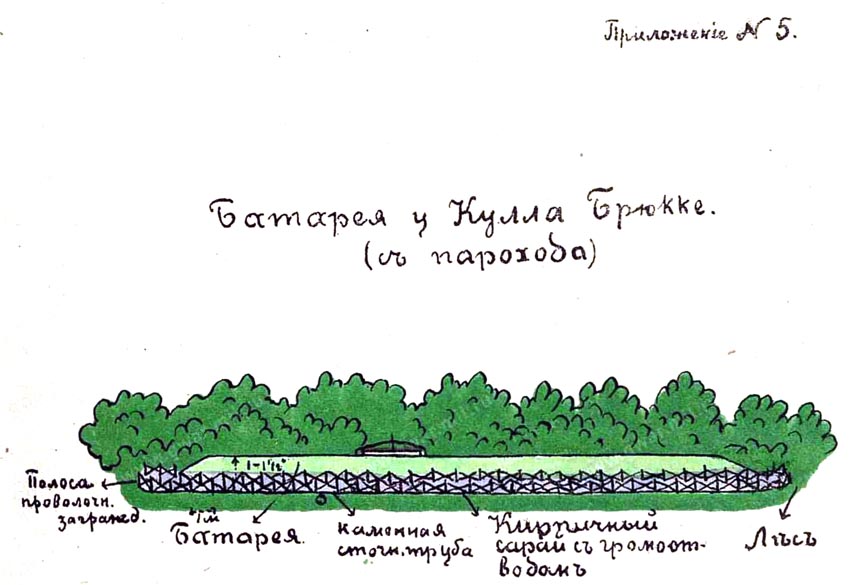 Приложеніе № 5.
Батарея у Кулла Брюкке.
(съ парохода)
Полоса
проволочн.
загражд.
Батарея
каменная
сточн. труба
Кирпичный
сарай съ громоот-
водомъ
Лѣсъ